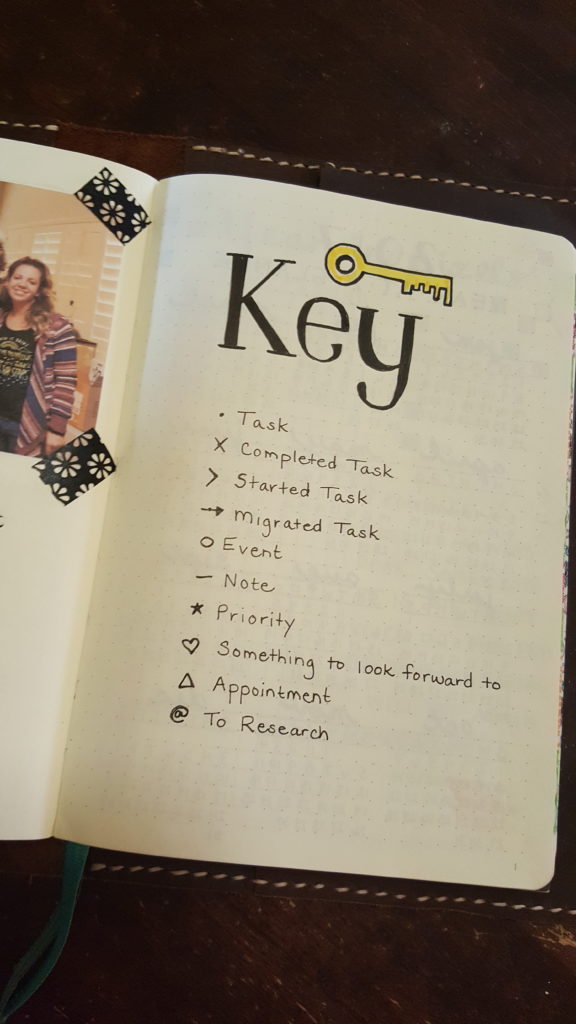 Key
• Task
X Completed Task
> Started Task
→ Migrated Task
○ Event
— Note
★ Priority
♡ Something to look forward to
△ Appointment
@ To Research
1